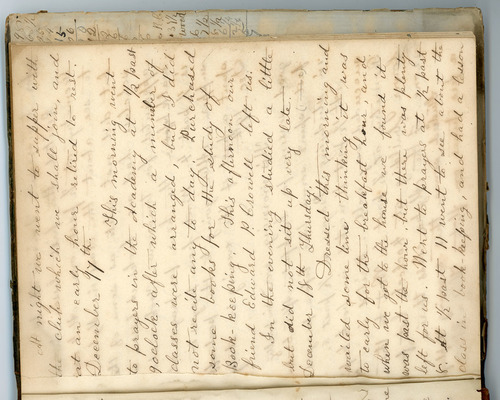 At night we went to supper with
the club which we shall join, and
at an early hour retired to rest.
December 17th. This morning went
to prayers in the Academy at ½ past
9 oclock, after which a number of
classes were arranged, but I did
not recite any to day. Purchased
some books for the study of
Book-keeping. This afternoon our
friend Edward P. Crowell left us.
In the evening studied a little
but did not set up very late.
December 18th Thursday.
Dressed this morning and
waited some time thinking it was
to early for the breakfast hour, and
when we got to the house we found it
was past the hour but there was plenty
left for us. Went to prayers at ½ past
& at ½ past 11 went to see about the
class in book keeping, and had a lesson